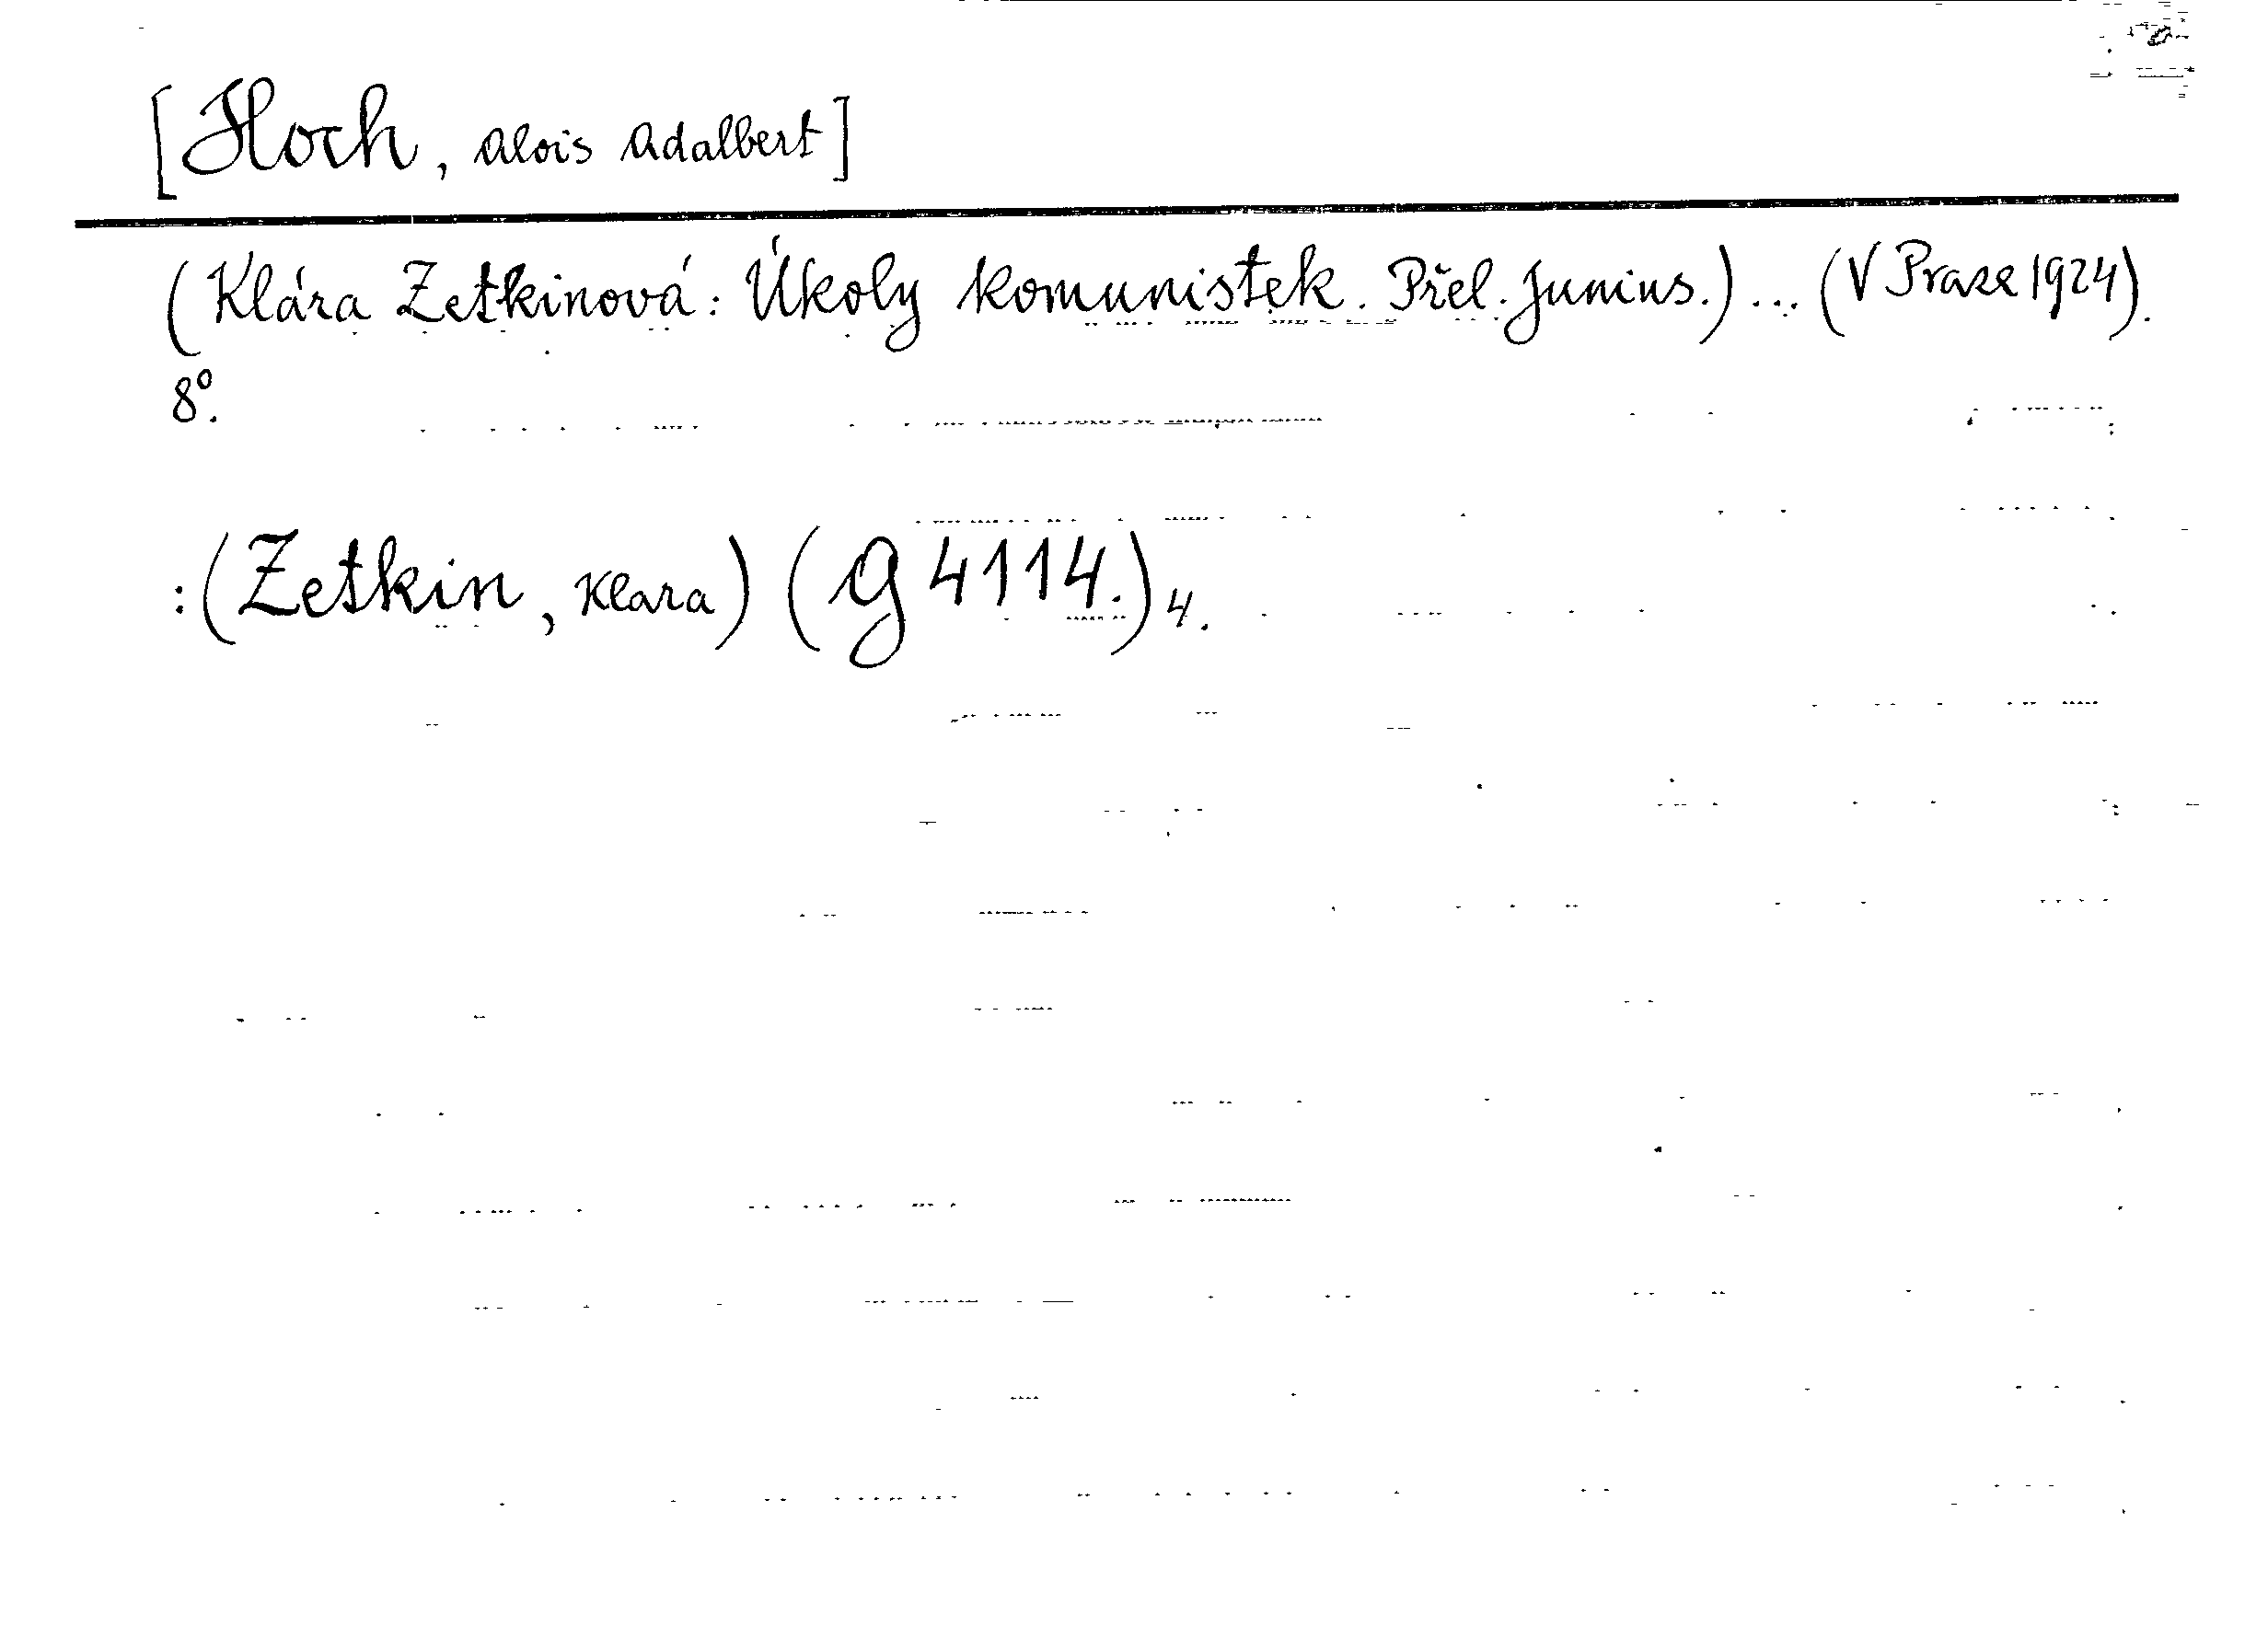 [Hoch, Alois Adalbert]
(Klára Zetkinová: Úkoly komunistek. Přel. Junius.) ... (V Praze 1924).
8º.
:(Zetkin, Klara) (G 4114.) 4.